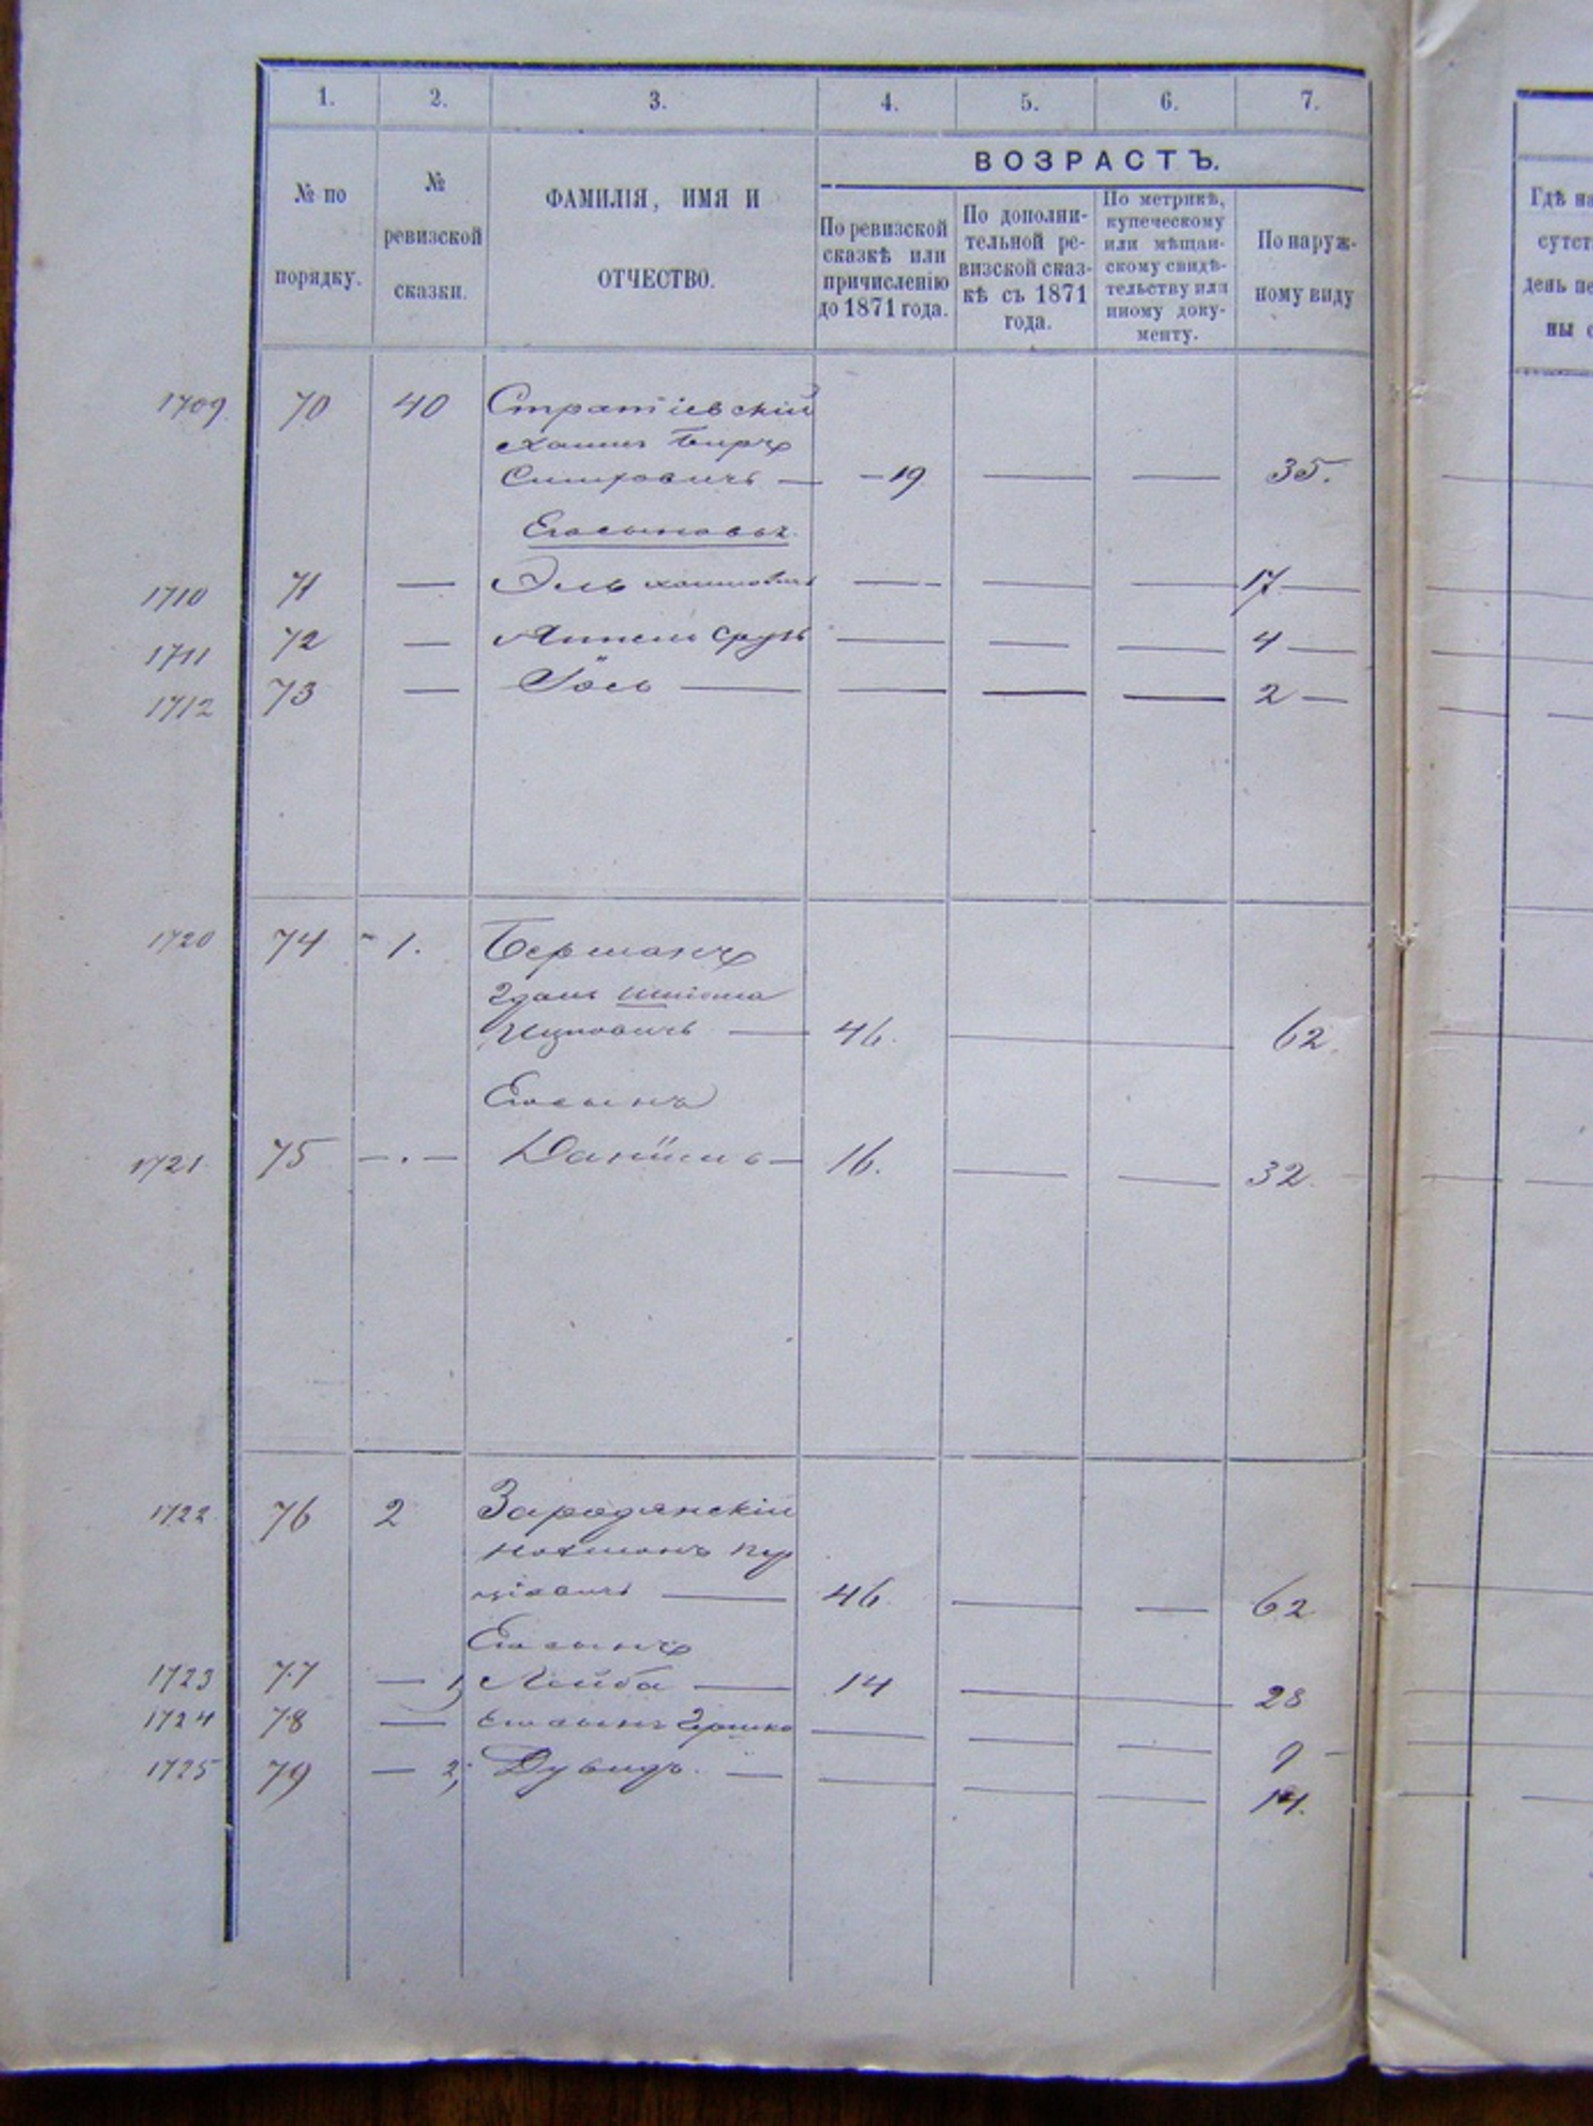 1. 2. 3. 4. 5. 6. 7.
№ по порядку.
№ ревизской сказки.
ФАМИЛІЯ, ИМЯ И
ОТЧЕСТВО.
ВОЗРАСТЪ.
По ревизской
сказкѣ или
причисленію
до 1871 года.
По дополни-
тельной ре-
визской сказ-
кѣ съ 1871
года.
По метрикѣ,
купеческому
или мѣщан-
скому свидѣ-
тельству или
иному доку-
менту.
По наруж-
ному виду
1709 70 40 Стратіевскій
Хаимъ Беръ
— 19 — — 35.
Его сыновья
1710 71 — Эль Хаимовичъ — — — 17 —
1711 72 — Срулъ — — — 4 —
1712 73 — — — — — 2 —
1720 74 - 1. Берманъ
Ицковичъ — 46. — 62.
Его сынъ
1721 75 — . — Даніилъ — 16. — — 32.
1722 76 2 Зародянскій
Нохманъ
— 46. — — 62
Его сынъ
1723 77 — 1, Лейба — 14 — 28
1724 78 — Его сынъ Гершко — — — 9 —
1725 79 — 2; Дувидъ. — — — — 14.
Гдѣ на
сутст
день пе
ны с